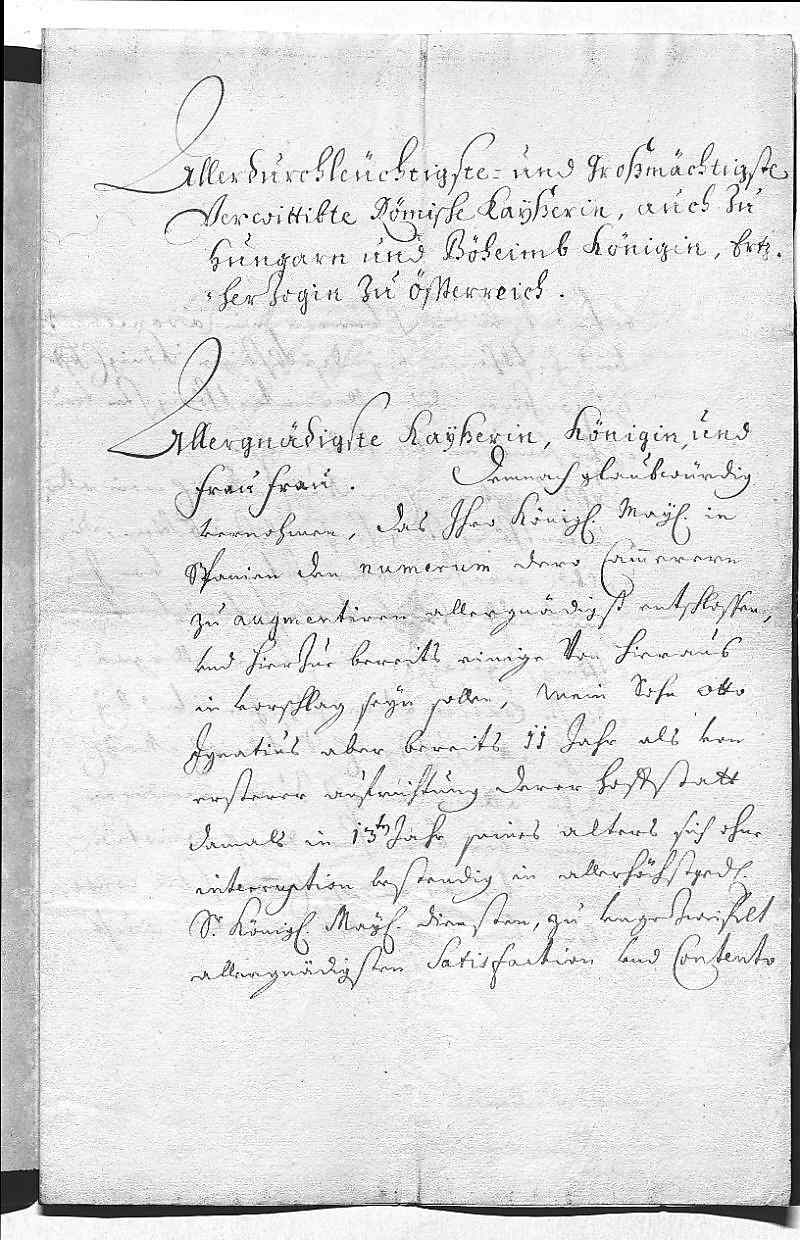 Allerdurchleüchtigste- und Großmächtigste
Verwittibte Römische Kayßerin, auch Zu
Hungarn und Böheimb Königin, Ertz-
-herzogin Zu Össterreich.
Allergnädigste Kayßerin, Königin, und
Frau Frau. Demnach glaubwürdig
vernohmen, das Ihro Königl. May. in
Spanien den numerum dero Cam̄erern
zu augmentiren allergnädigst entschlossen,
und hierzue bereits einige von hieraus
in vorschlag seyn sollen, mein Sohn Otto
Ignatius aber bereits 11 Jahr als von
ersterer aufrichtung derer hoffstatt
damals in 13ten Jahr seines alters sich ohne
interruption bestendig in allerhöchstged.
Sr. Königl. May. diensten, zu ungezweifelt
allergnädigsten Satisfaction und Contento